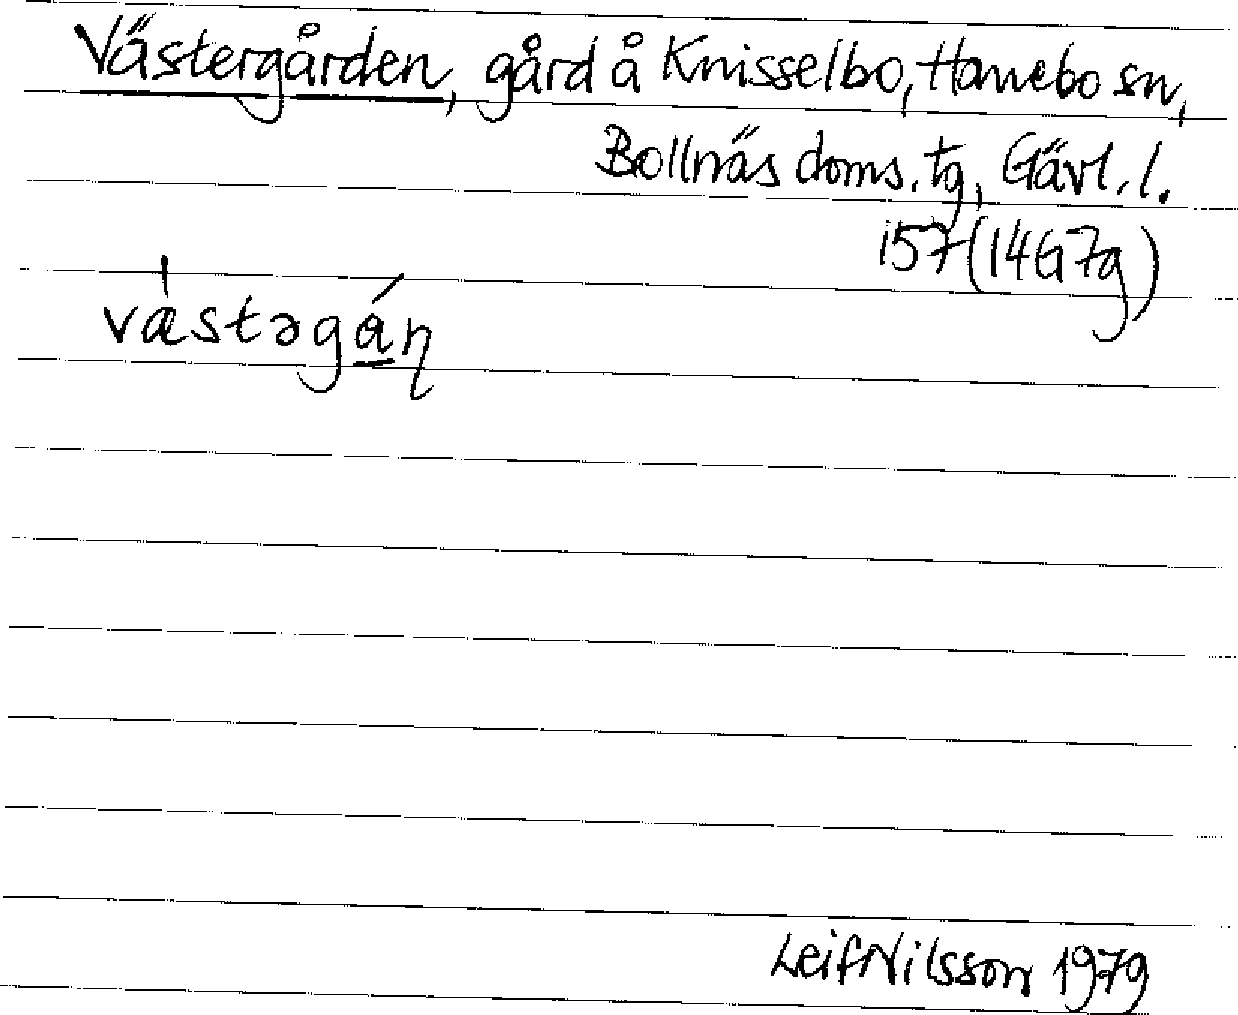 Västergården, gård å Knisselbo, Hanebo sn,
Bollnäs doms. tg, Gävl. l.
157 (14G7g)
västəgán
Leif Nilsson 1979